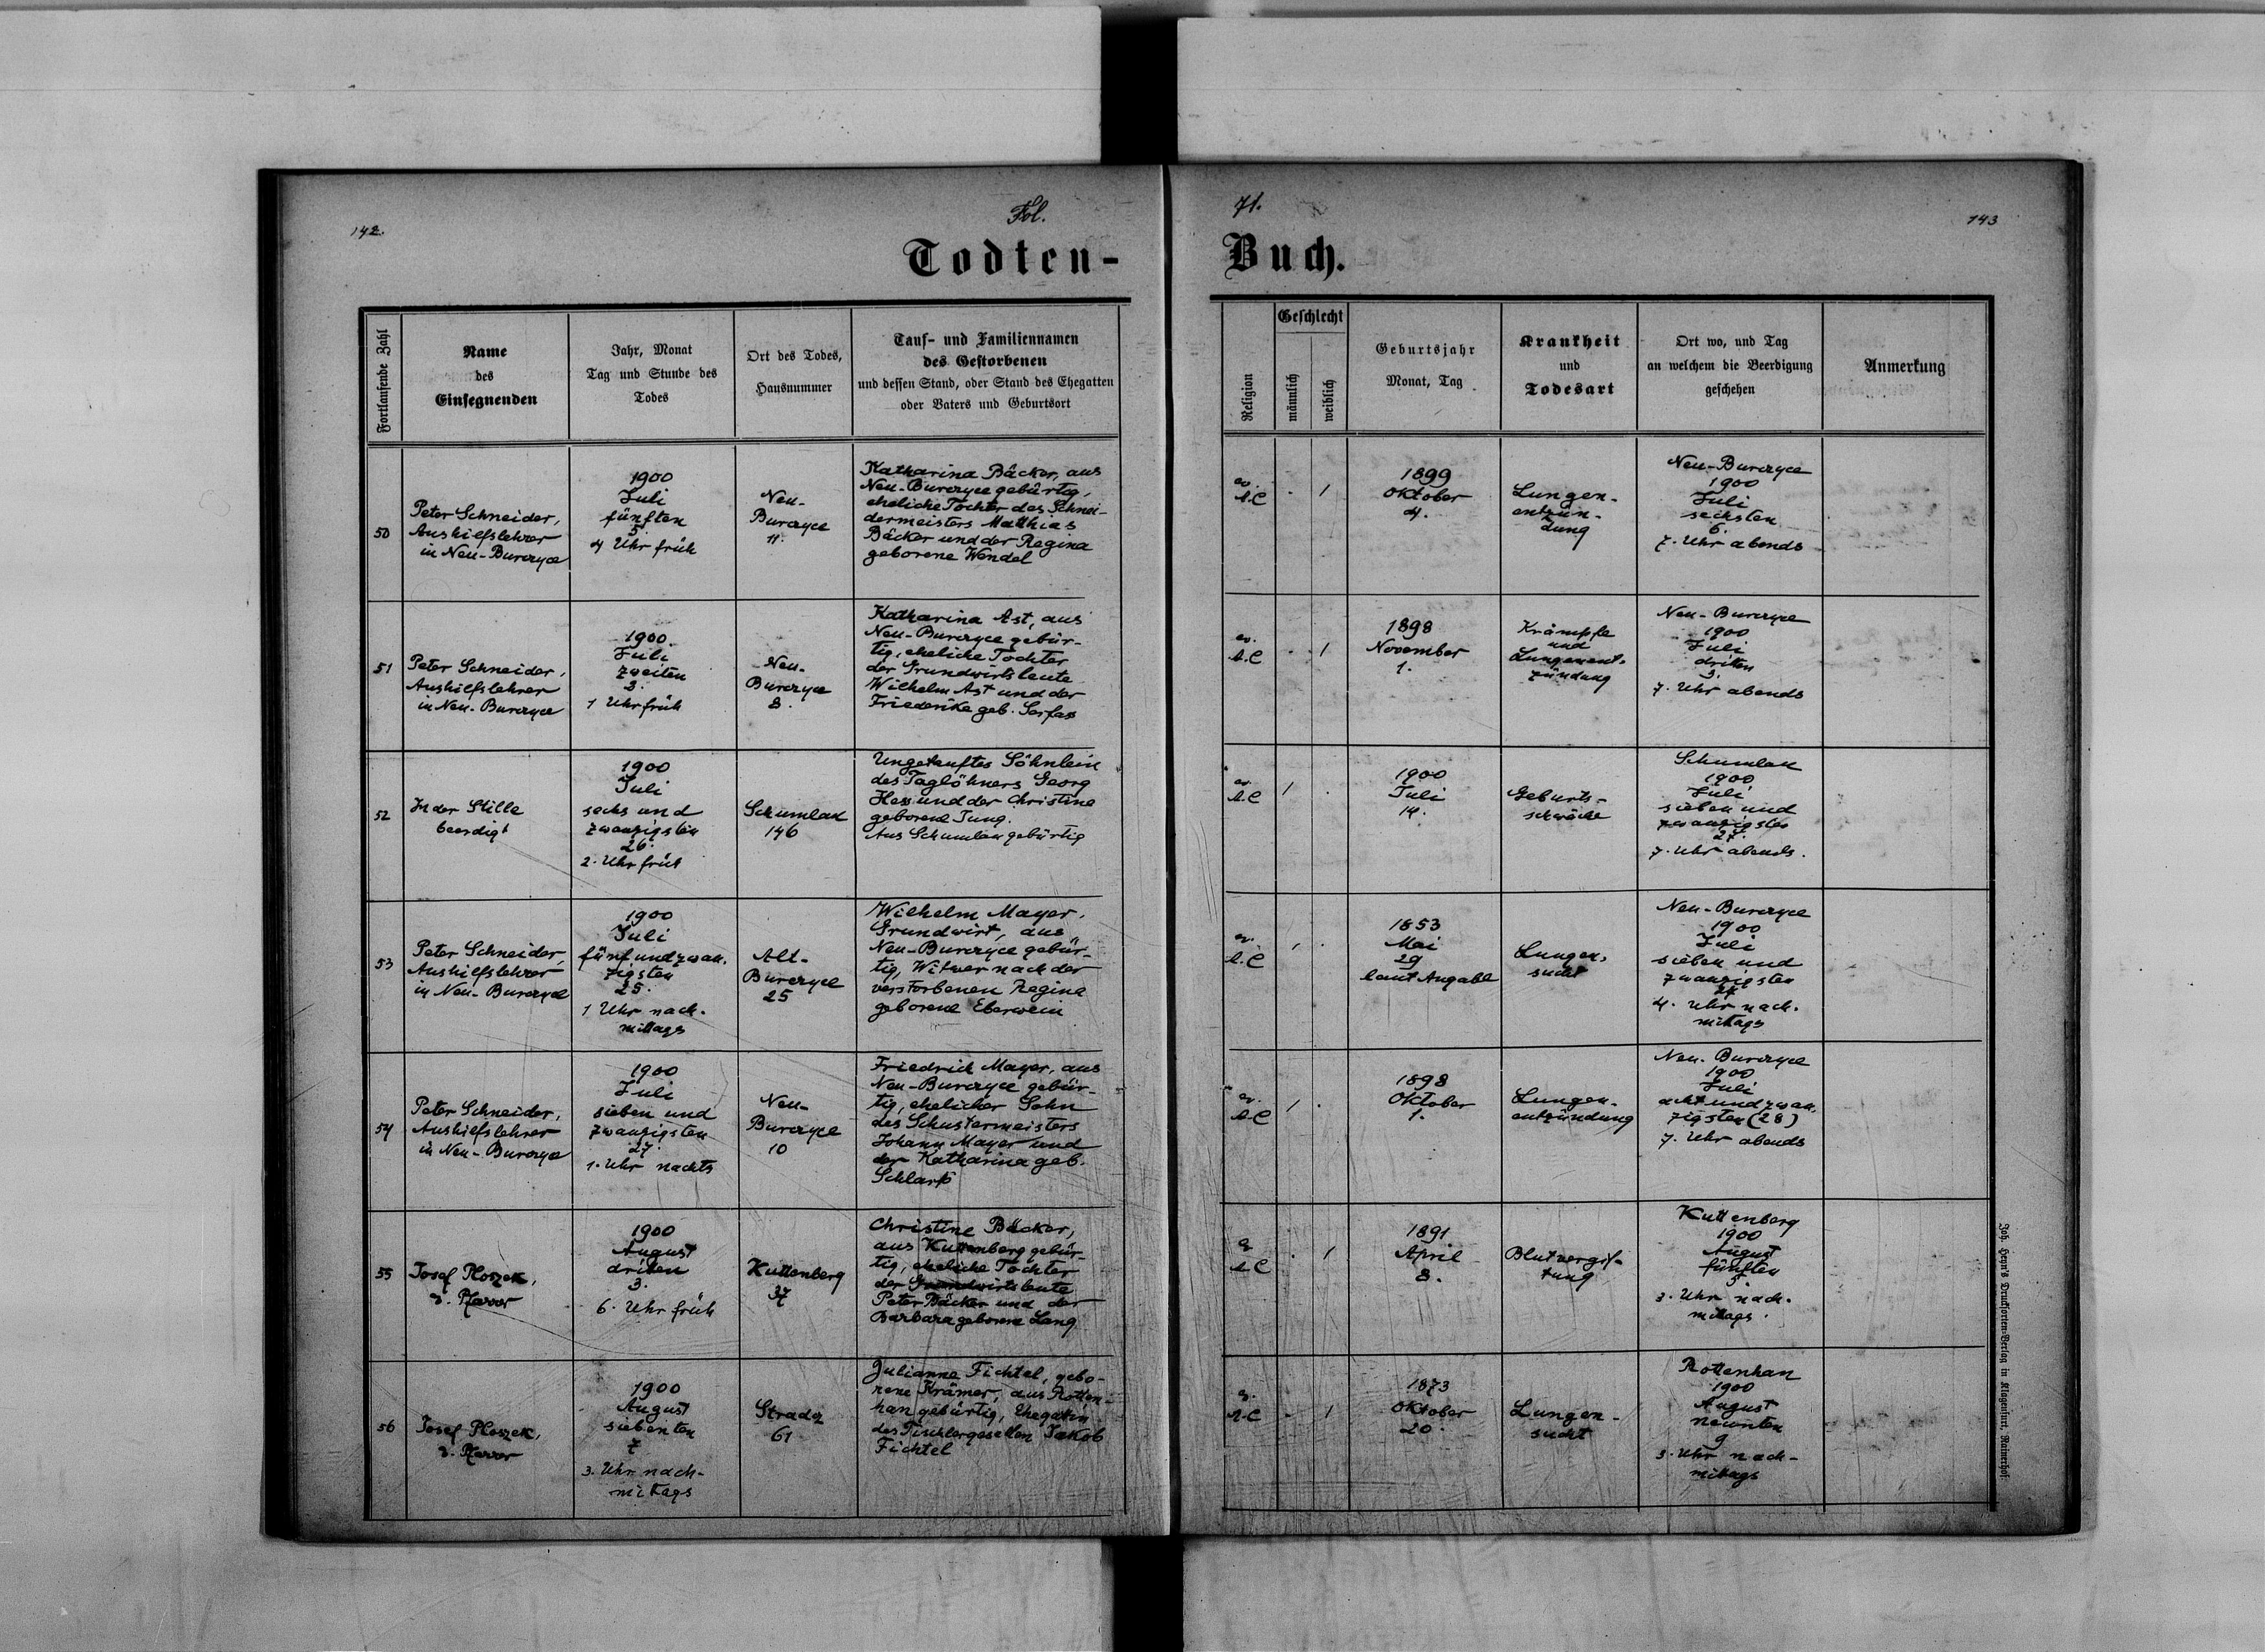 142.
Fol.
71.
143
Todten-
Buch.
Fortlaufende Zahl
Name
des
Einsegnenden
Jahr, Monat
Tag und Stunde des
Todes
Ort des Todes,
Hausnummer
Tauf- und Familiennamen
des Gestorbenen
und dessen Stand, oder Stand des Ehegatten
oder Vaters und Geburtsort
Religion
Geschlecht
männlich
weiblich
Geburtsjahr
Monat, Tag
Krankheit
und
Todesart
Ort wo, und Tag
an welchem die Beerdigung
geschehen
Anmerkung
50
Peter Schneider,
Aushilfslehrer
in Neu-Burczyce
1900
Juli
fünften
5.
4 Uhr früh
Neu-
Burczyce
11.
Katharina Bäcker, aus
Neu-Burczyce gebürtig,
eheliche Tochter des Schnei-
dermeisters Matthias
Bäcker und der Regina
geborene Wendel
ev.
A.C
. 1
1899
Oktober
4.
Lungen-
entzün-
dung
Neu-Burczyce
1900
Juli
sechsten
6.
7. Uhr abends
51
Peter Schneider,
Aushilfslehrer
in Neu-Burczyce
1900
Juli
zweiten
2.
1 Uhr früh
Neu-
Burczyce
8.
Katharina Ast, aus
Neu-Burczyce gebür-
tig, eheliche Tochter
der Grundwirtsleute
Wilhelm Ast und der
Friederike geb. Serfas
ev.
A.C
. 1
1898
November
1.
Krämpfe
und
Lungenent-
zündung
Neu-Burczyce
1900
Juli
dritten
3.
7. Uhr abends
52
In der Stille
beerdigt
1900
Juli
sechs und
zwanzigsten
26.
2. Uhr früh
Schumlau
146
Ungetauftes Söhnlein
des Taglöhners Georg
Hess und der Christine
geborene Jung.
Aus Schumlau gebürtig
ev.
A.C
1 .
1900
Juli
14.
Geburts-
schwäche
Schumlau
1900
Juli
sieben und
zwanzigsten
27.
7. Uhr abends.
53
Peter Schneider,
Aushilfslehrer
in Neu-Burczyce
1900
Juli
fünfundzwan-
zigsten
25.
1 Uhr nach-
mittags
Alt-
Burczyce
25
Wilhelm Mayer,
Grundwirt, aus
Neu-Burczyce gebür-
tig, Witwer nach der
verstorbenen Regina
geborene Eberwein
ev.
A.C
1 .
1853
Mai
29
laut Angabe
Lungen-
sucht
Neu-Burczyce
1900
Juli
sieben und
zwanzigsten
27
4. Uhr nach-
mittags
54
Peter Schneider,
Aushilfslehrer
in Neu-Burczyce
1900
Juli
sieben und
zwanzigsten
27.
1. Uhr nachts
Neu-
Burczyce
10
Friedrich Mayer, aus
Neu-Burczyce gebür-
tig, ehelicher Sohn
des Schustermeisters
Johann Mayer und
der Katharina geb.
Schlark
ev.
A.C
1 .
1898
Oktober
1.
Lungen-
entzündung
Neu-Burczyce
1900
Juli
acht und zwan-
zigsten (28)
7. Uhr abends
55
Josef Ploszek,
z. Pfarrer
1900
August
dritten
3.
6. Uhr früh
Kuttenberg
37
Christine Bäcker,
aus Kuttenberg gebür-
tig, eheliche Tochter
der Grundwirtsleute
Peter Bäcker und der
Barbara geborene Lang
A.C
. 1
1891
April
8.
Blutvergif-
tung
Kuttenberg
1900
August
fünften
5.
3. Uhr nach-
mittags.
56
Josef Ploszek,
z. Pfarrer
1900
August
siebenten
7
3. Uhr nach-
mittags
Stradcz
61
Julianna Fichtel, gebo-
rene Krämer, aus Rotten-
han gebürtig, Ehegattin
des Tischlergesellen Jakob
Fichtel
A.C
. 1
1873
Oktober
20.
Lungen-
sucht
Rottenhan
1900
August
neunten
9
3. Uhr nach-
mittags
Joh. Heyn's Drucksorten-Verlag in Klagenfurt, Rainerhof.